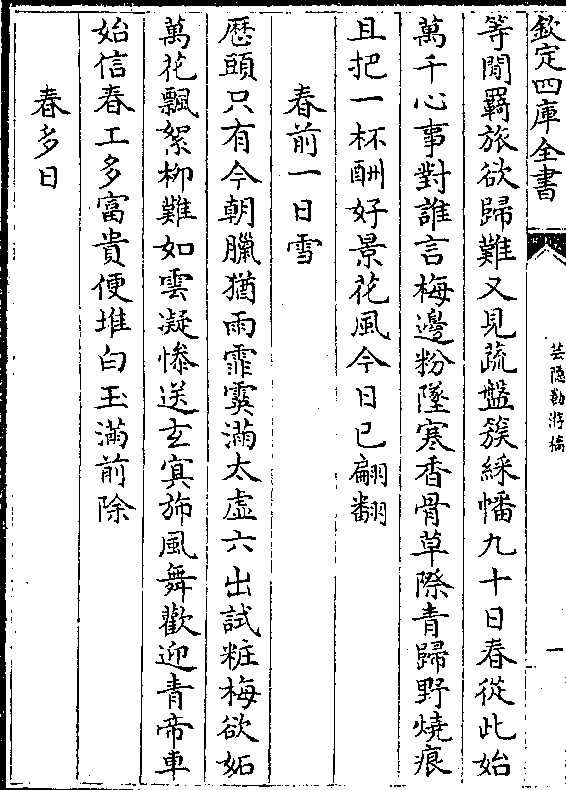 欽定四庫全書
芸隱勌游稿
一
等閒羇旅欲歸難又見蔬盤簇綵幡九十日春從此始
萬千心事對誰言梅邊粉墜寒香骨草際青歸野燒痕
且把一杯酬好景花風今日已翩翻
春前一日雪
厯頭只有今朝臘猶雨霏霙滿太虛六出試粧梅欲妬
萬花飄絮柳難如雲凝慘送玄寞斾風舞歡迎青帝車
始信春工多富貴便堆白玉滿前除
春多日